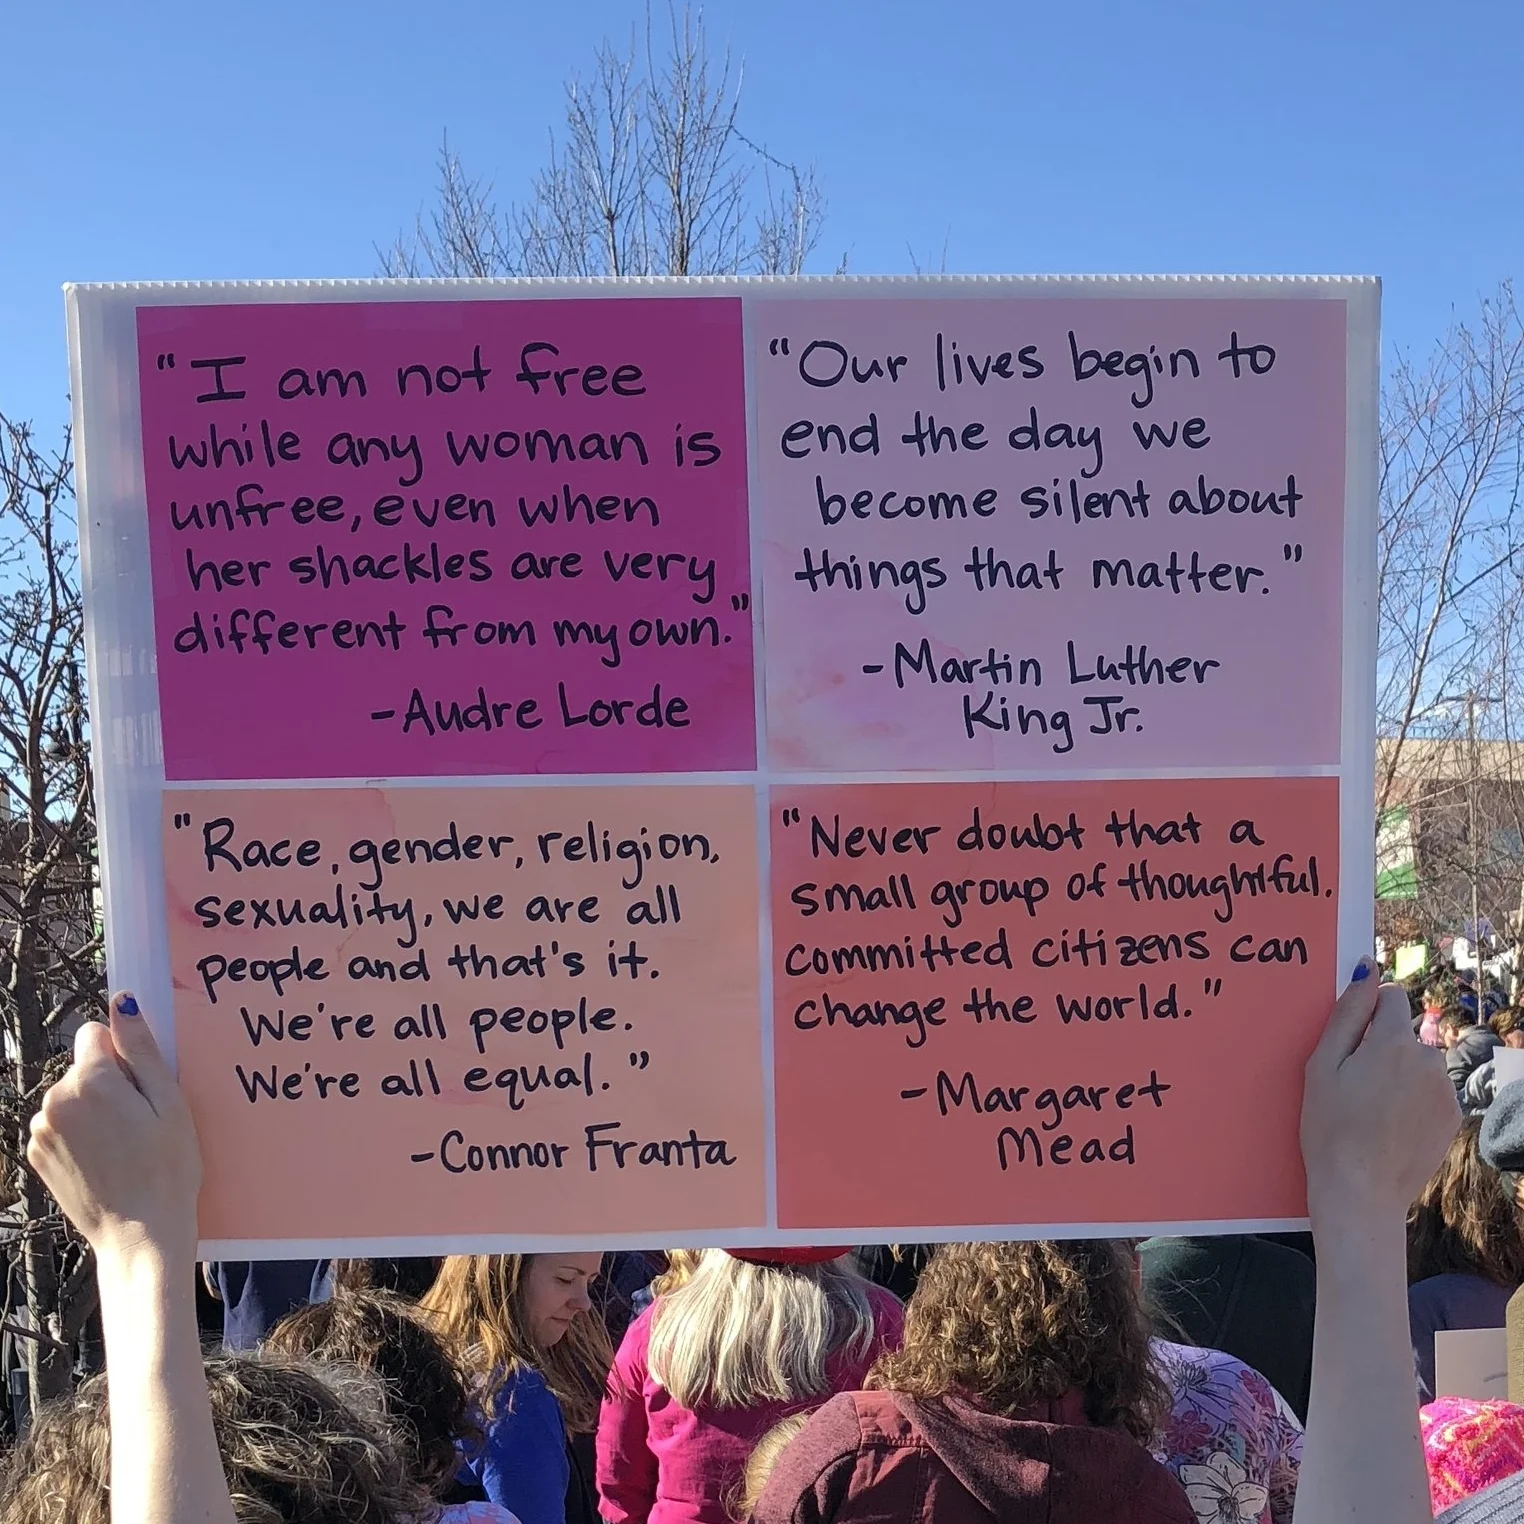 "I am not free
while any woman is
unfree, even when
her shackles are very
different from my own."
-Audre Lorde
"Our lives begin to
end the day we
become silent about
things that matter."
-Martin Luther
King Jr.
"Race, gender, religion,
sexuality, we are all
people and that's it.
We're all people.
We're all equal."
-Connor Franta
"Never doubt that a
small group of thoughtful,
committed citizens can
change the world."
-Margaret
Mead